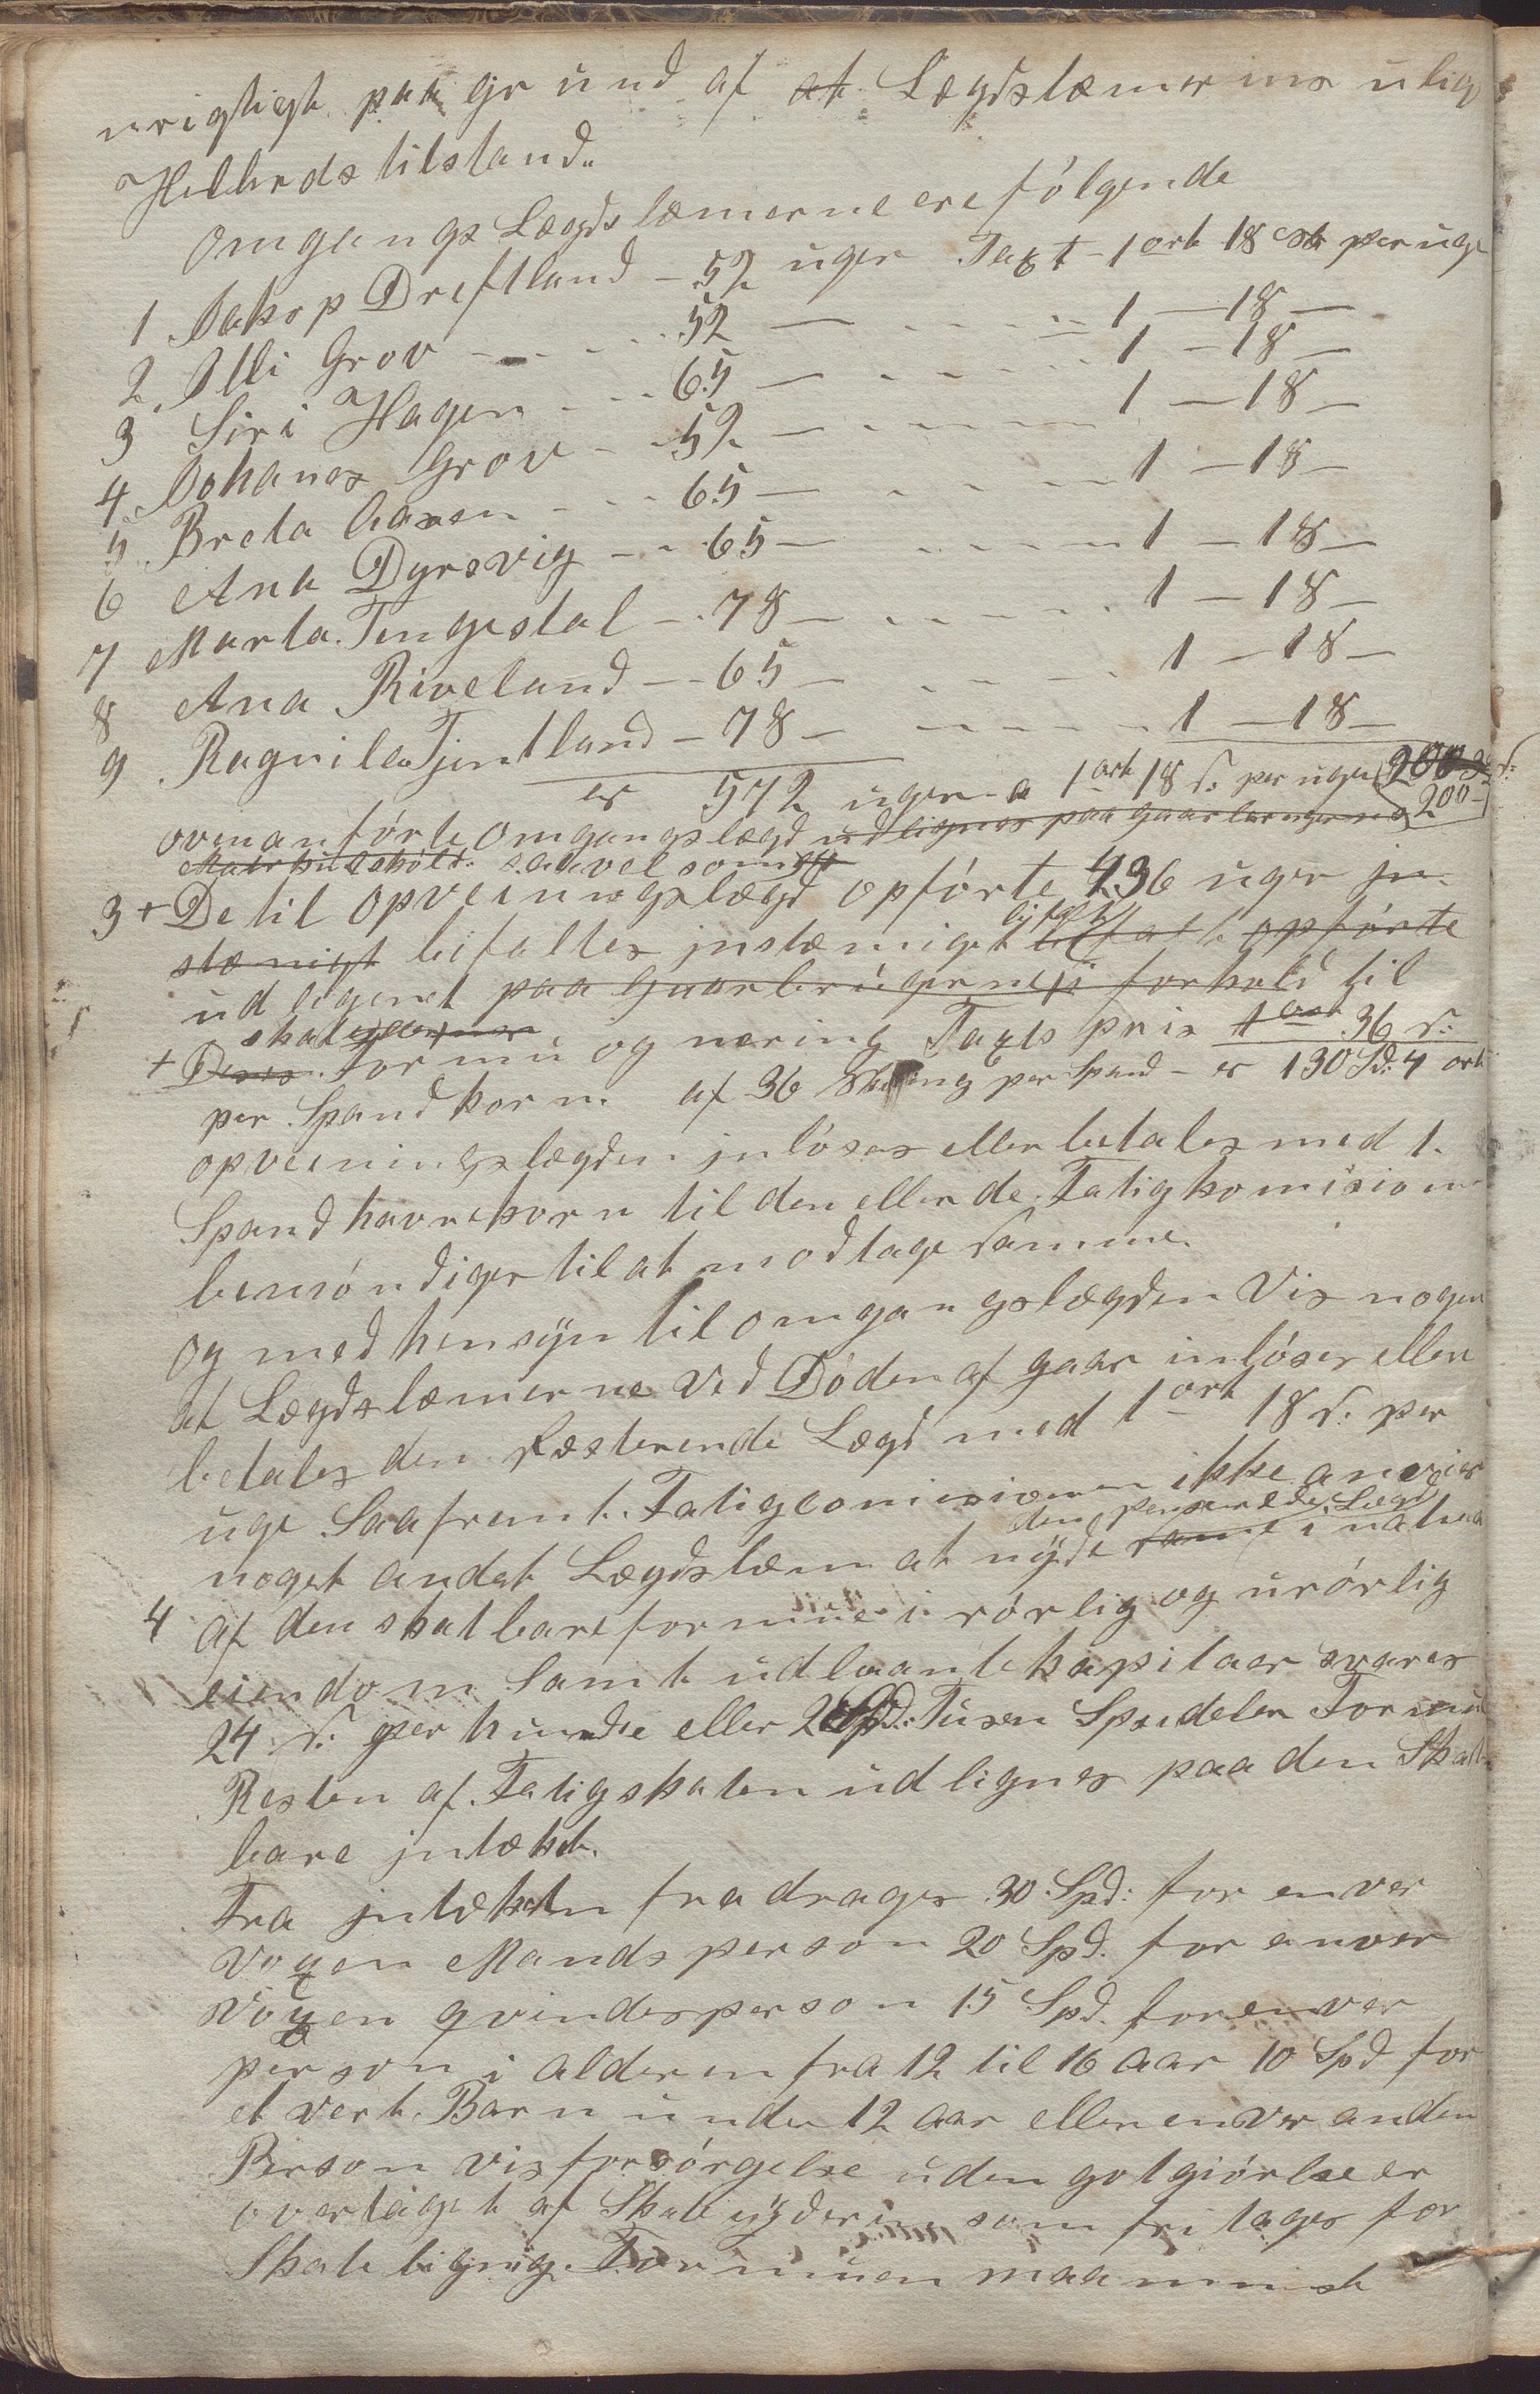 urigtigt paa grund af at Lægdslæmerins ulige
Helbrds tilstand.
Omgangs Lægdslæmerne ere følgende
1 Jakop Dreftland – 52 uger Taxt – 1 ort 18 sk per uge
2 Olli Grov – – – 52 — – – – – 1 — 18 —
3 Siri Hagen – – – 65 — – – – – 1 — 18 —
4 Johanes Grov – – 52 — – – – – 1 — 18 —
5 Breta Aasen – – – 65 — – – – – 1 — 18 —
6 Ana Dyrsvig – – – 65 — – – – – 1 — 18 —
7 Marta Tengestal – – 78 — – – – – 1 — 18 —
8 Ana Riveland – – 65 — – – – – 1 — 18 —
9 Ragnila Tjentland – 78 — – – – – 1 — 18 —
er 572 uger a 1 ort 18 s: per uge 200
ovenanførte omgangslægd udlignes paa gaarbrugernes 200 –
saavel som
3 + De til opveiningslægd opførte 436 uger jn-
stæmigt bifaltes jnstæmiget bifalt opførte
udlignet paa Gaarbrugerne i forhold til
skat
+ Deres formu og næring Taxts pris 1 ort 36 s:
per Spand korn af 36 Skilling per Spand – er 130 Sd: 4 ort
opveiningslægden jnløses eller betales med 1
Spand havrekorn til den eller de Fatigkomision
bemøndiger til at modtage samme.
og med hensyn til omgangslægden Vis nogen
af Lægdslæmerne ved Døden af gaar inløses eller
betales den Ræsterende Lægd med 1 ort 18 s: per
uge Saafremt Fatigcomisionen ikke anviser
den pensenede Lægd
noget andet Lægdslæm at nyde same i natura
4 af den skatbare formue i rørlig og urørlig
eiendom Samt udlaante kapitaer svares
24 s: per hundre eller 2 Spd: Tusen Spesideler Formu
Resten af Fatigskaten udlignes paa den Skat
bare jntækt.
Fra jntækten fradrages 30 Spd: for enver
Voxen Mandsperson 20 Spd. for enver
Voxen qvindesperson 15 Spd. for enver
person i alderen fra 12 til 16 aar 10 Spd for
et vert Barn under 12 aar eller enver anden
Person vis forsørgelse uden gotgiørlse er
overtaget af Skateyderen som fritages for
Skatelignig. Formuen maa minst